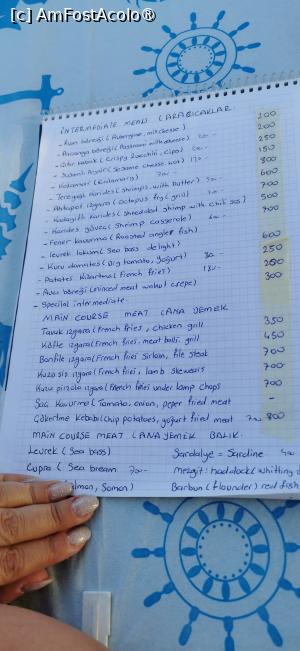 [c] AmFostAcolo®
INTERMEDIATE MEAN (ARASICAKLAR.
200
200
- Paçanga böreği (Pastrami with cheese) 250
- Çıtır kabak (Crispy zucchini, 150
- Susamlı Peynir (Sesame cheese 300
- Kalamar (Calamary) 600
- Tereyağlı Karides (Shrimps with butter) 700
- Ahtapot ızgara (Octopus fry, grill) 500
- Kadayıflı Karides (Shredded shrimp with 700
- Karides güveç (Shrimp casserole)
- Fener kavurma (Roasted angler fish) 600
- levrek lokum (Sea bass delight) 250
- Kuru domates (Dry tomato, yogurt) 200
- Patates Kızartma (French fries) 300
- Avcı böreği (Minced meat walnut crepe)
- Special intermediate.
MAIN COURSE MEAT (ANA YEMEK
Tavuk ızgara (French fries, chicken grill 350
Köfte ızgara (French fries, meat ball, grill 450
Bonfile ızgara (French fries sirloin, file steak 700
Kuzu şiş ızgara (French fries, lamb skewers 700
Kuzu pirzola ızgara (French fries under lamp chops 700
Saç Kavurma (Tomato, onion, peper fried meat -
Çökertme kebabı (Chip potatoes, yoğurt fried meat 800
MAIN COURSE MEAT (ANA YEMEK BALIK.
Levrek (Sea bass) Sardalye = Sardine
Çupra (Sea bream 700- Mezgit: haddock (whitting
Somon) Barbun (flounder) red fish